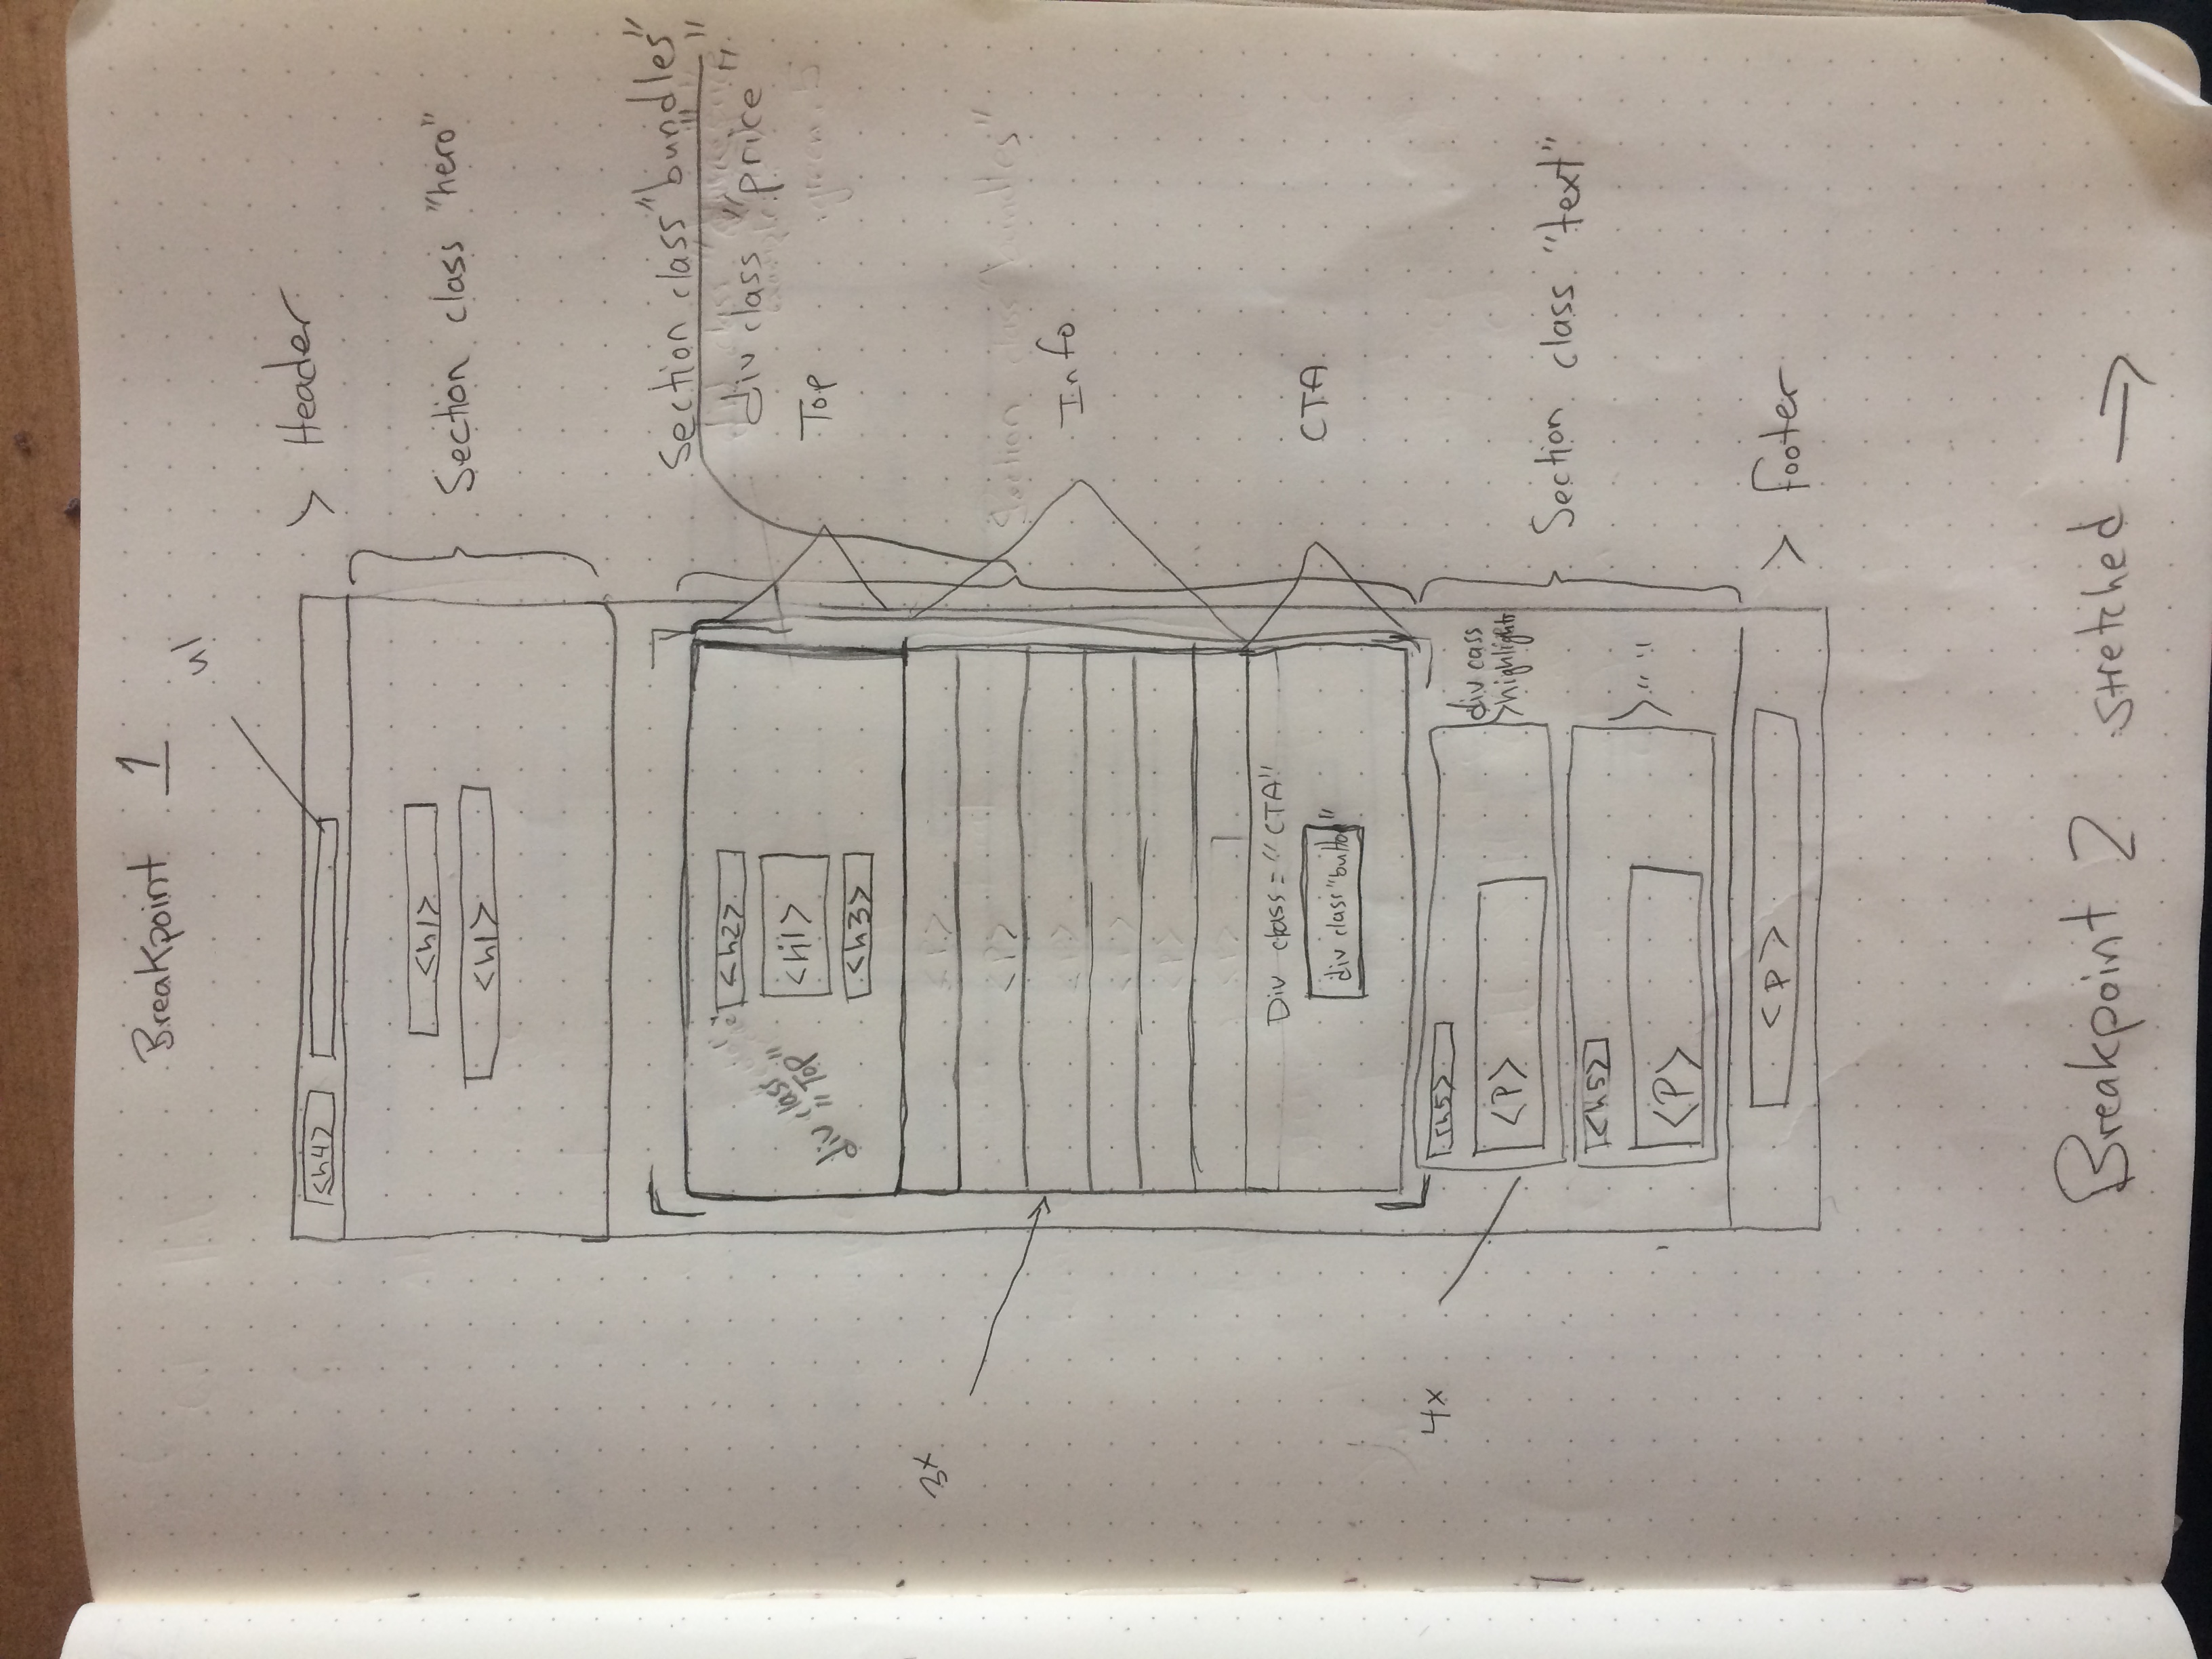 Breakpoint 1
ul
<h4>
> Header
<h1>
<h1>
Section class "hero"
Section class "bundles"
div class "price"
Top
<h2>
div class
"Top"
<h1>
<h3>
3x
<P>
<P>
Section class "bundles"
Info
Div class = "CTA"
div class "button"
CTA
4x
<h5>
<P>
div cass
>highlights
Section class "text"
<h5>
<P>
>" "
<p>
> footer
Breakpoint 2 stretched →